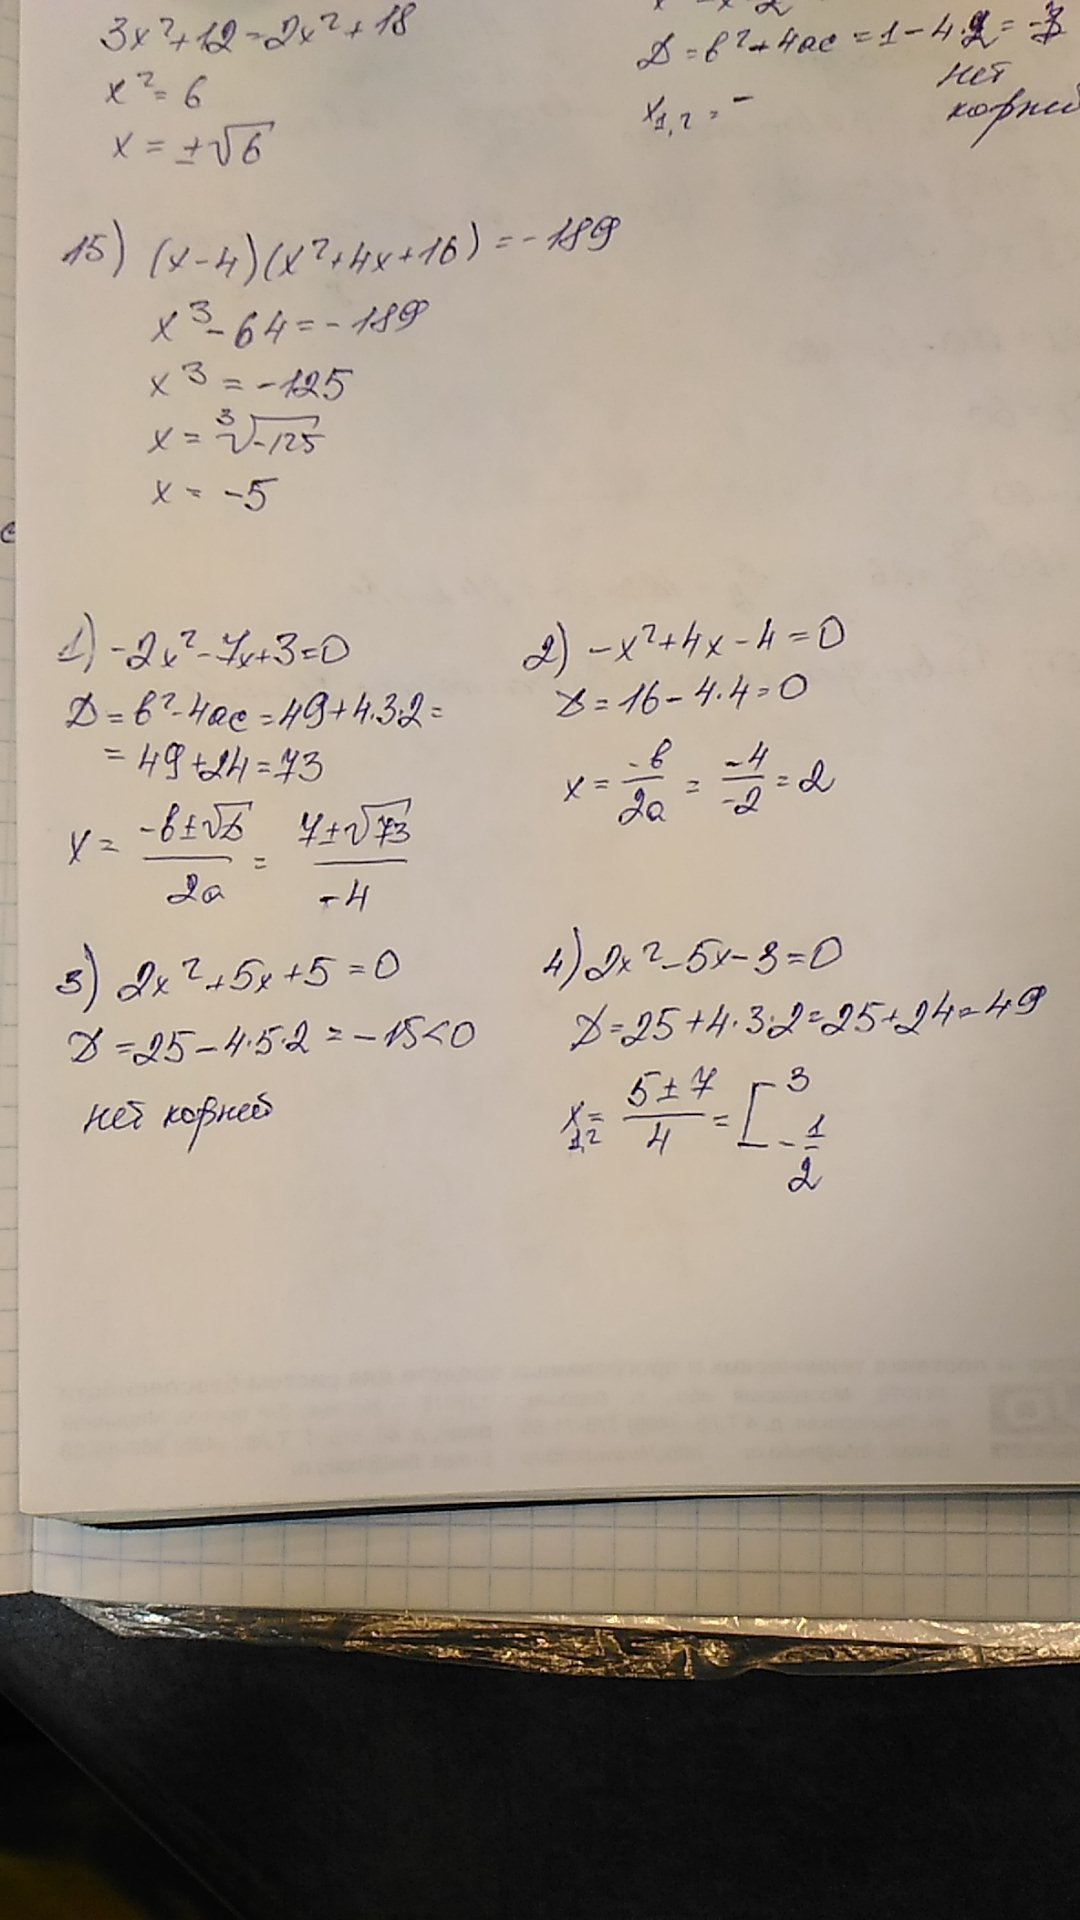 3x²+12=2x²+18
x²=6
x=±√6
D=b²-4ac=1-4·2=-7
нет
корней
x1,2=-
15) (x-4)(x²+4x+16)=-189
x³-64=-189
x³=-125
x=³√-125
x=-5
1) -2x²-7x+3=0
D=b²-4ac=49+4·3·2=
=49+24=73
x= -b±√D / 2a = 7±√73 / -4
2) -x²+4x-4=0
D=16-4·4=0
x= -b / 2a = -4 / -2 =2
3) 2x²+5x+5=0
D=25-4·5·2=-15<0
нет корней
4) 2x²-5x-3=0
D=25+4·3·2=25+24=49
x1,2= 5±7 / 4 = [ 3
- 1 / 2